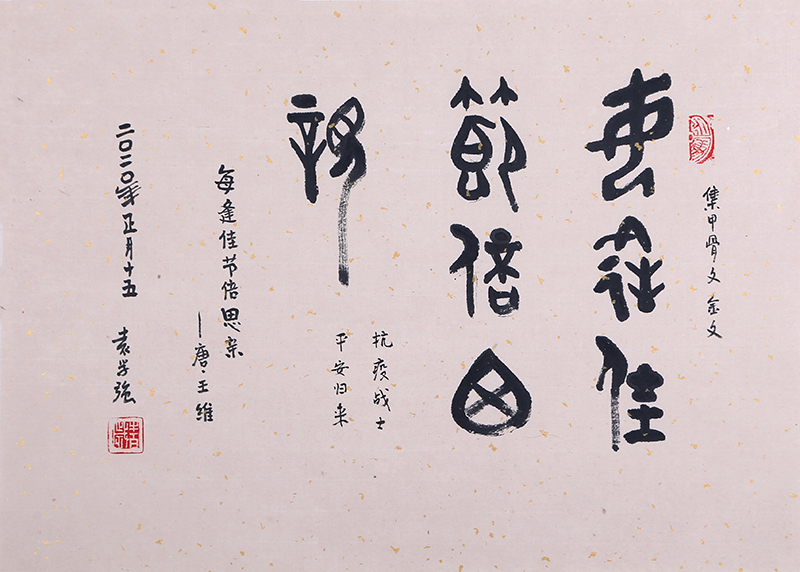 集甲骨文金文
每逢佳
節倍思
親
抗疫战士
平安归来
每逢佳节倍思亲
—唐·王维
二〇二〇年正月十五 袁学强